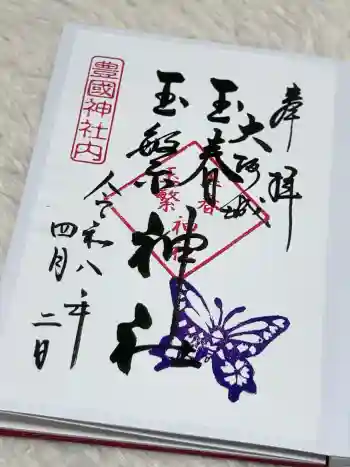 奉拝
大阪城
玉春
玉繁
神社
玉春
玉繁
神社
豊國神社内
令和八年
四月二日